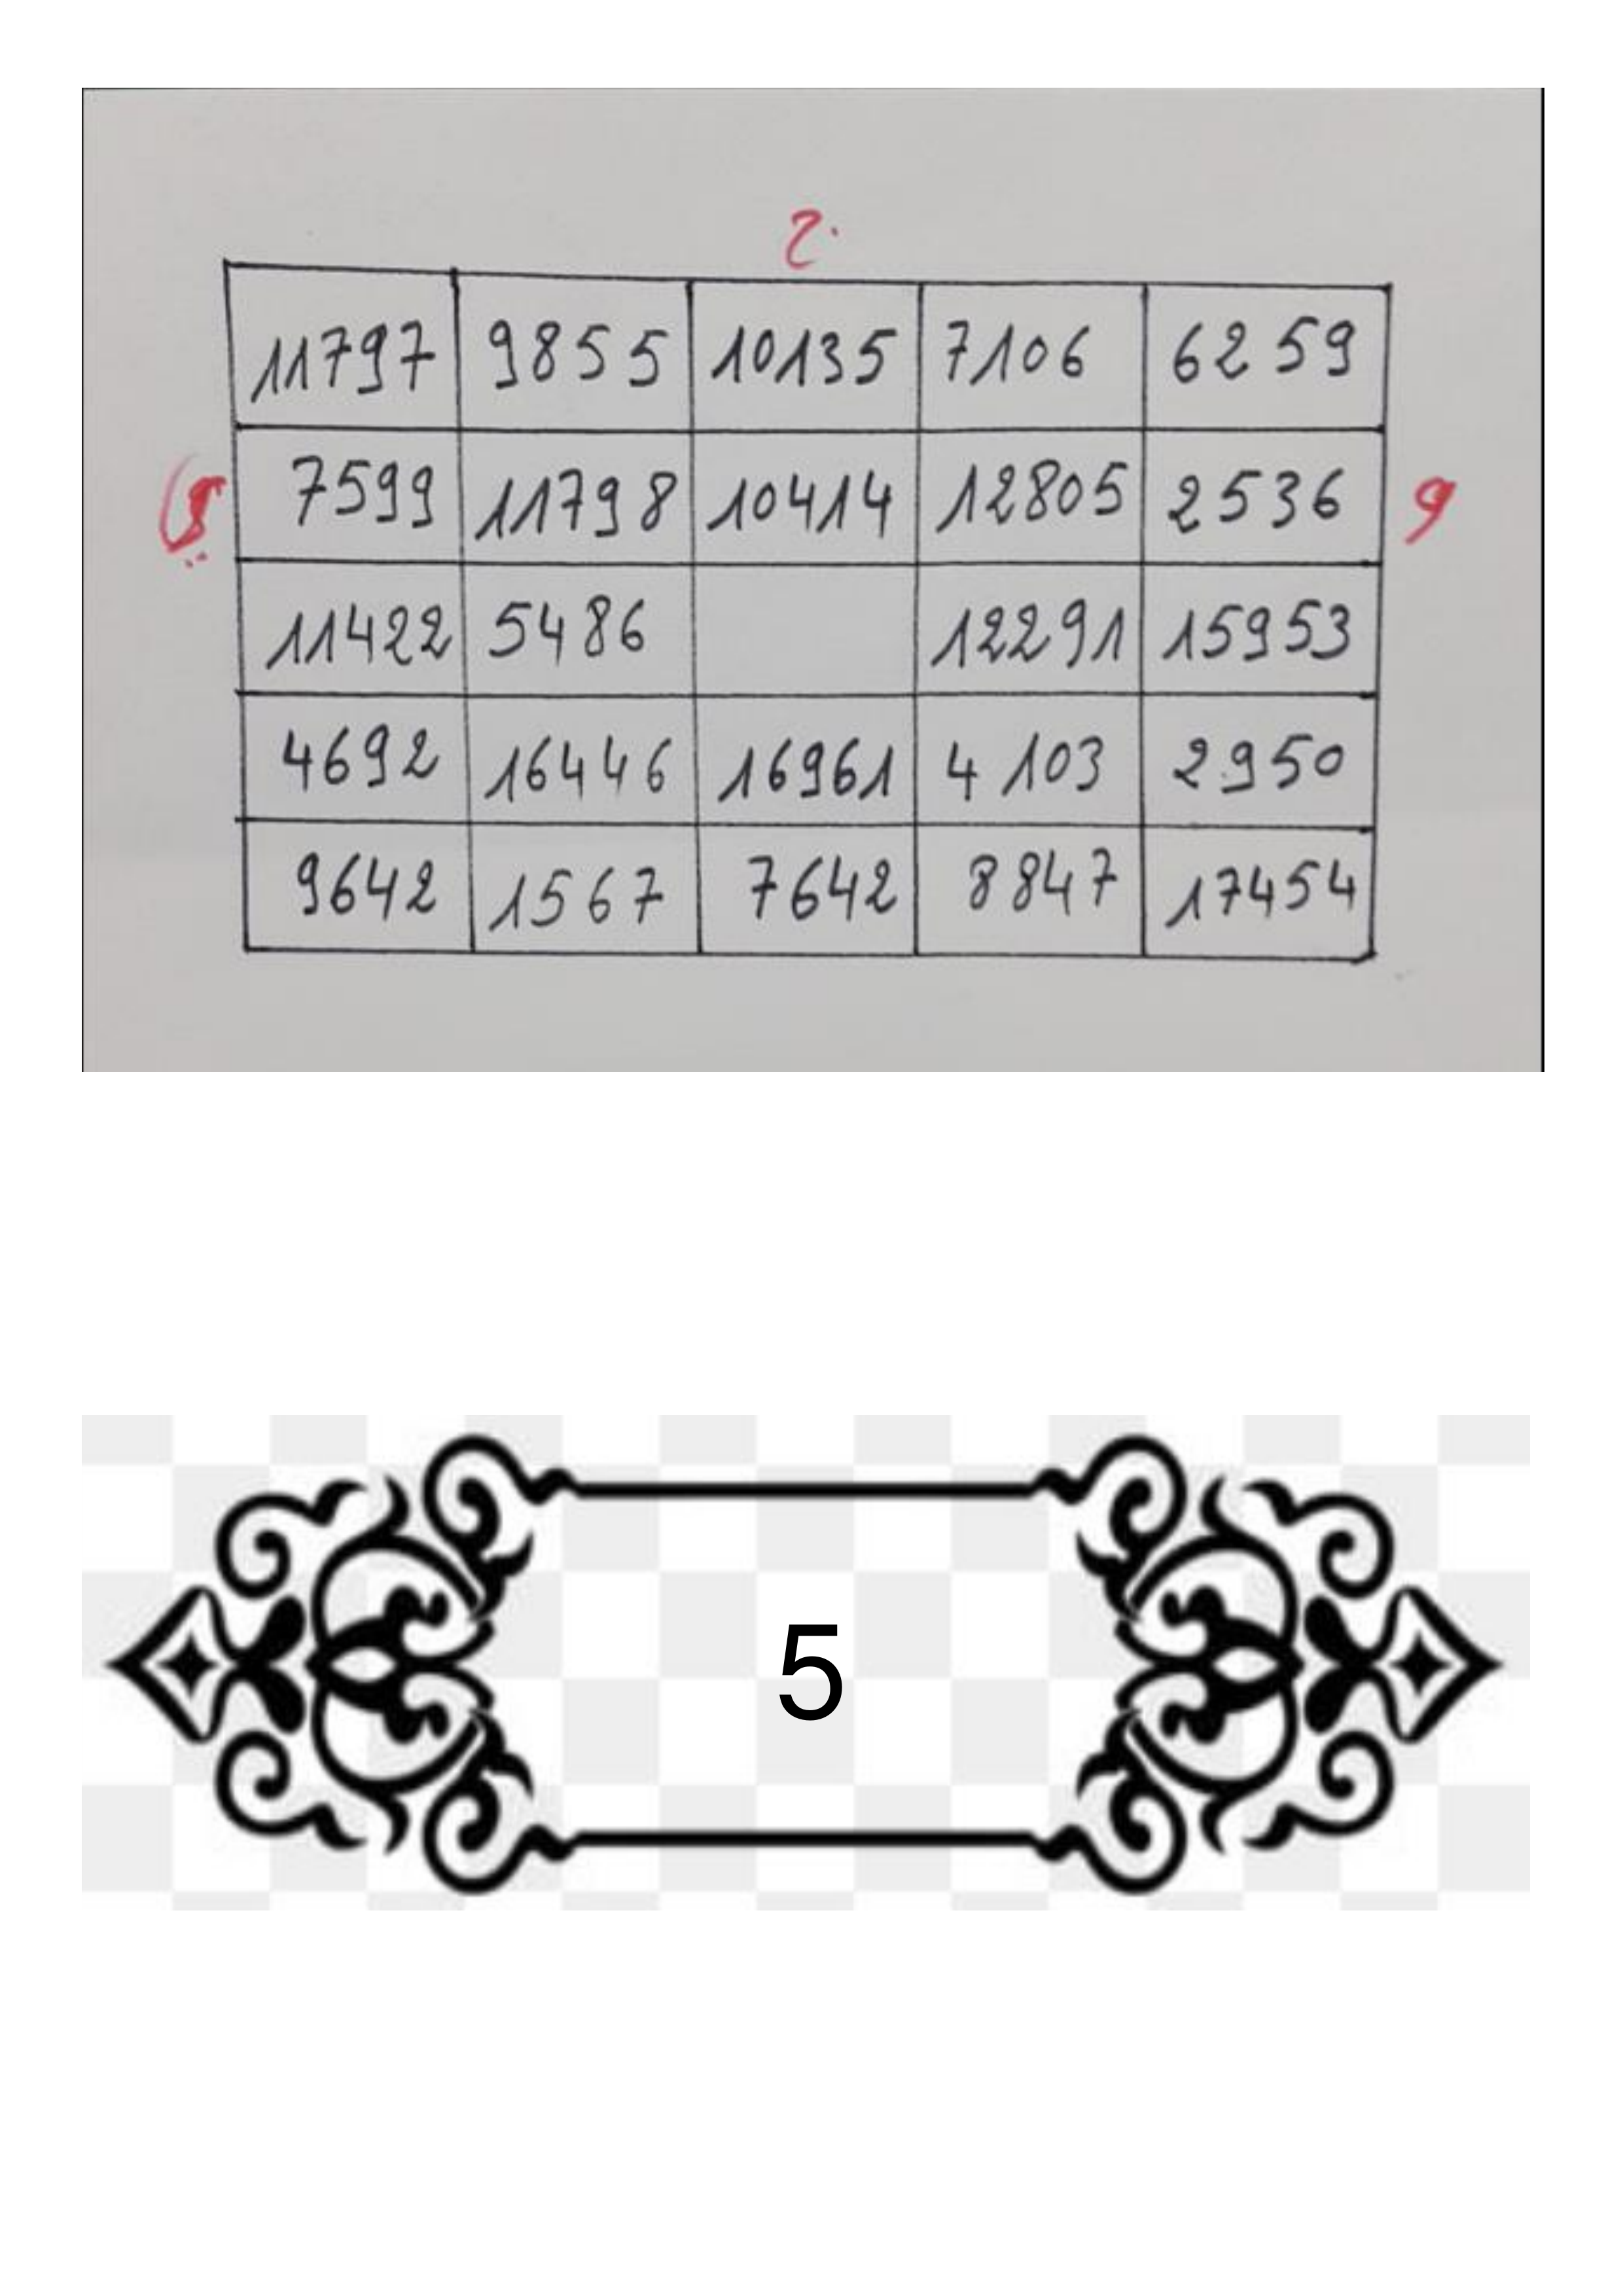 11797 9855 10135 7106 6259
7599 11798 10414 12805 2536
11422 5486 12291 15953
4692 16446 16961 4103 2950
9642 1567 7642 8847 17454
5